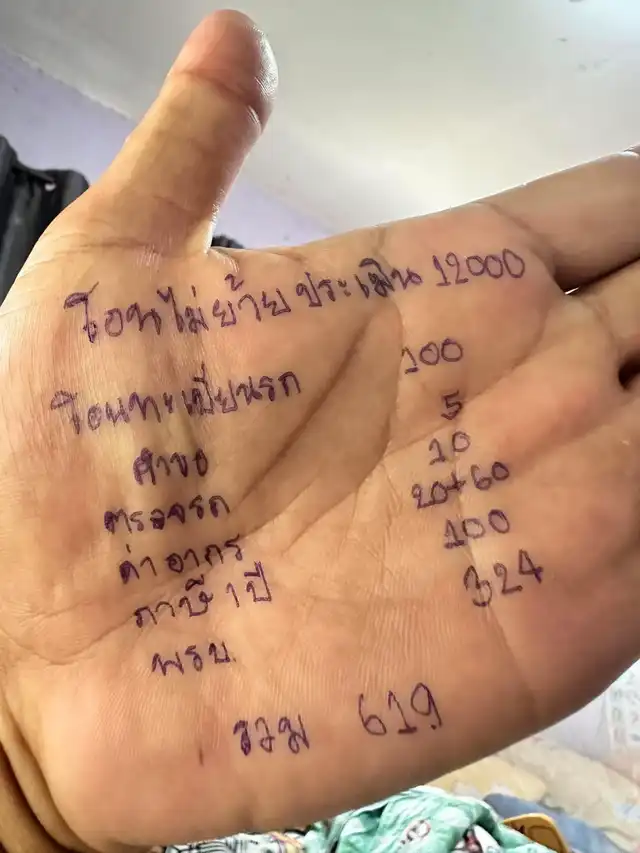 โอนไม่ย้าย ประเมิน 12000
โอนทะเบียนรถ 100
คำขอ 5
ตรวจรถ 10
ค่าอากร 20+60
ภาษี 1 ปี 100
พรบ. 324
รวม 619